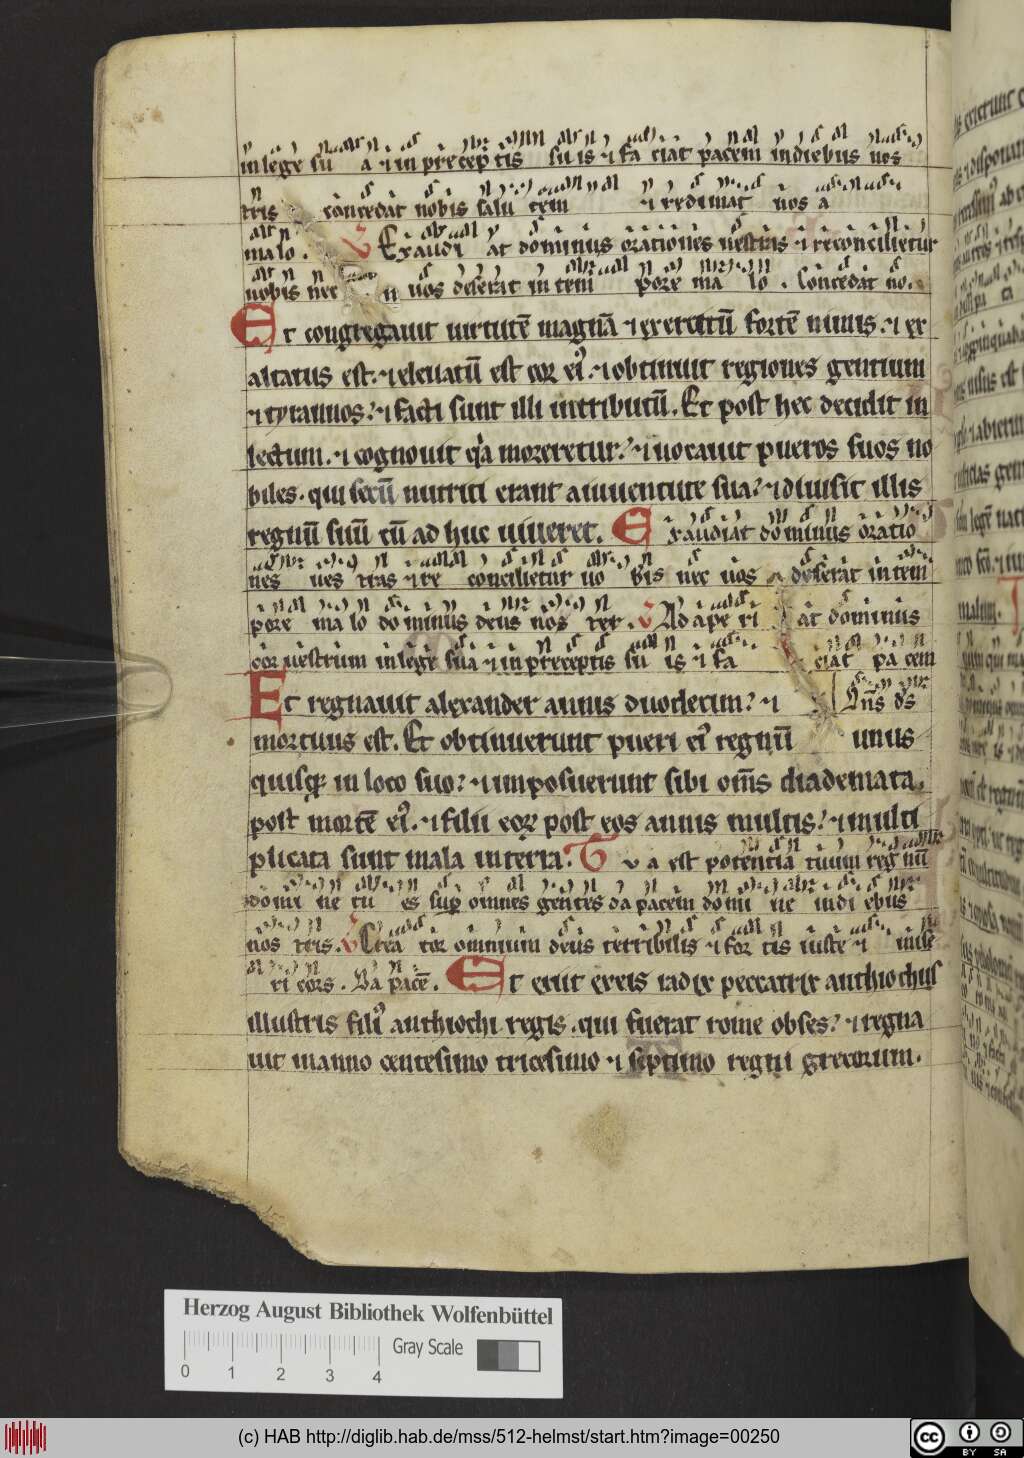 in lege su a ⁊ in precep tis su is ⁊ fa ciat pacem in diebus nos
tris concedat nobis salu tem ⁊ redimat nos a
malo . Exaudi at dominus orationes uestras ⁊ reconcilietur
nobis nec n uos deserat in tem pore ma lo . Concedat no.
Et congregauit uirtutē magnā ⁊ exercitū fortē nimis. ⁊ ex
altatus est. ⁊ eleuatū est cor ei᷒. ⁊ obtinuit regiones gentium
⁊ tyrannos. ⁊ facti sunt illi in tributū. Et post hec decidit in
lectum. ⁊ cognouit qͣa moreretur. ⁊ uocauit pueros suos no
biles. qui secū nutriti erant a iuuentute sua. ⁊ diuisit illis
regnū suū cū ad huc uiueret. Exaudiat dominus oratio
nes ues tras ⁊ re concilietur uo bis nec uos deserat in tem
pore ma lo dominus deus nos ter. Ad ape ri at dominus
cor uestrum in lege sua ⁊ in preceptis su is ⁊ fa ciat pa cem
Et regnauit alexander annis duodecim. ⁊ Dn̄s ds̄
mortuus est. Et obtinuerunt pueri ei᷒ regnū unus
quisqꝫ in loco suo. ⁊ imposuerunt sibi om̄s diademata.
post mortē ei᷒. ⁊ filii eoꝝ post eos annis multis. ⁊ multi
plicata sunt mala in terra. Tu a est potentia tuum reg nū
domi ne tu es suꝑ omnes gentes da pacem domi ne in di ebus
nos tris. Crea tor omnium deus terribilis ⁊ for tis iuste ⁊ mise
ri cors . Da pacē . Et exiit ex eis radix peccatrix anthiochus
illustris fili᷒ anthiochi regis. qui fuerat rome obses. ⁊ regna
uit in anno centesimo tricesimo ⁊ septimo regni grecorum.
Herzog August Bibliothek Wolfenbüttel
Gray Scale
0 1 2 3 4
(c) HAB http://diglib.hab.de/mss/512-helmst/start.htm?image=00250
cc BY SA